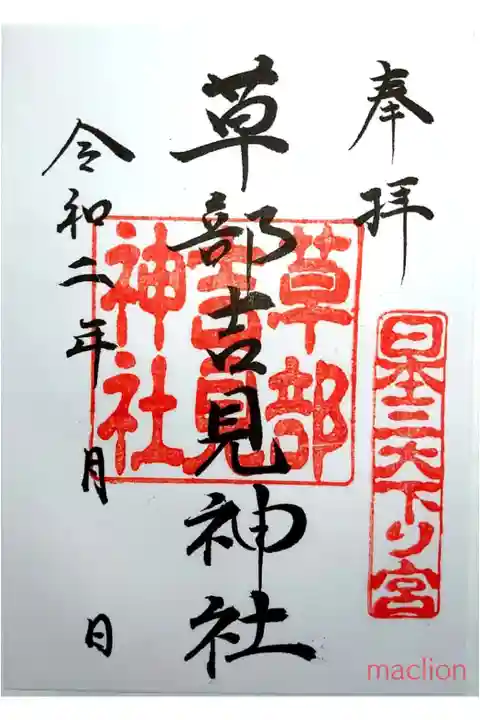 奉拝
日本三大下り宮
草部吉見神社
草部
吉見
神社
令和二年 月 日
maclion